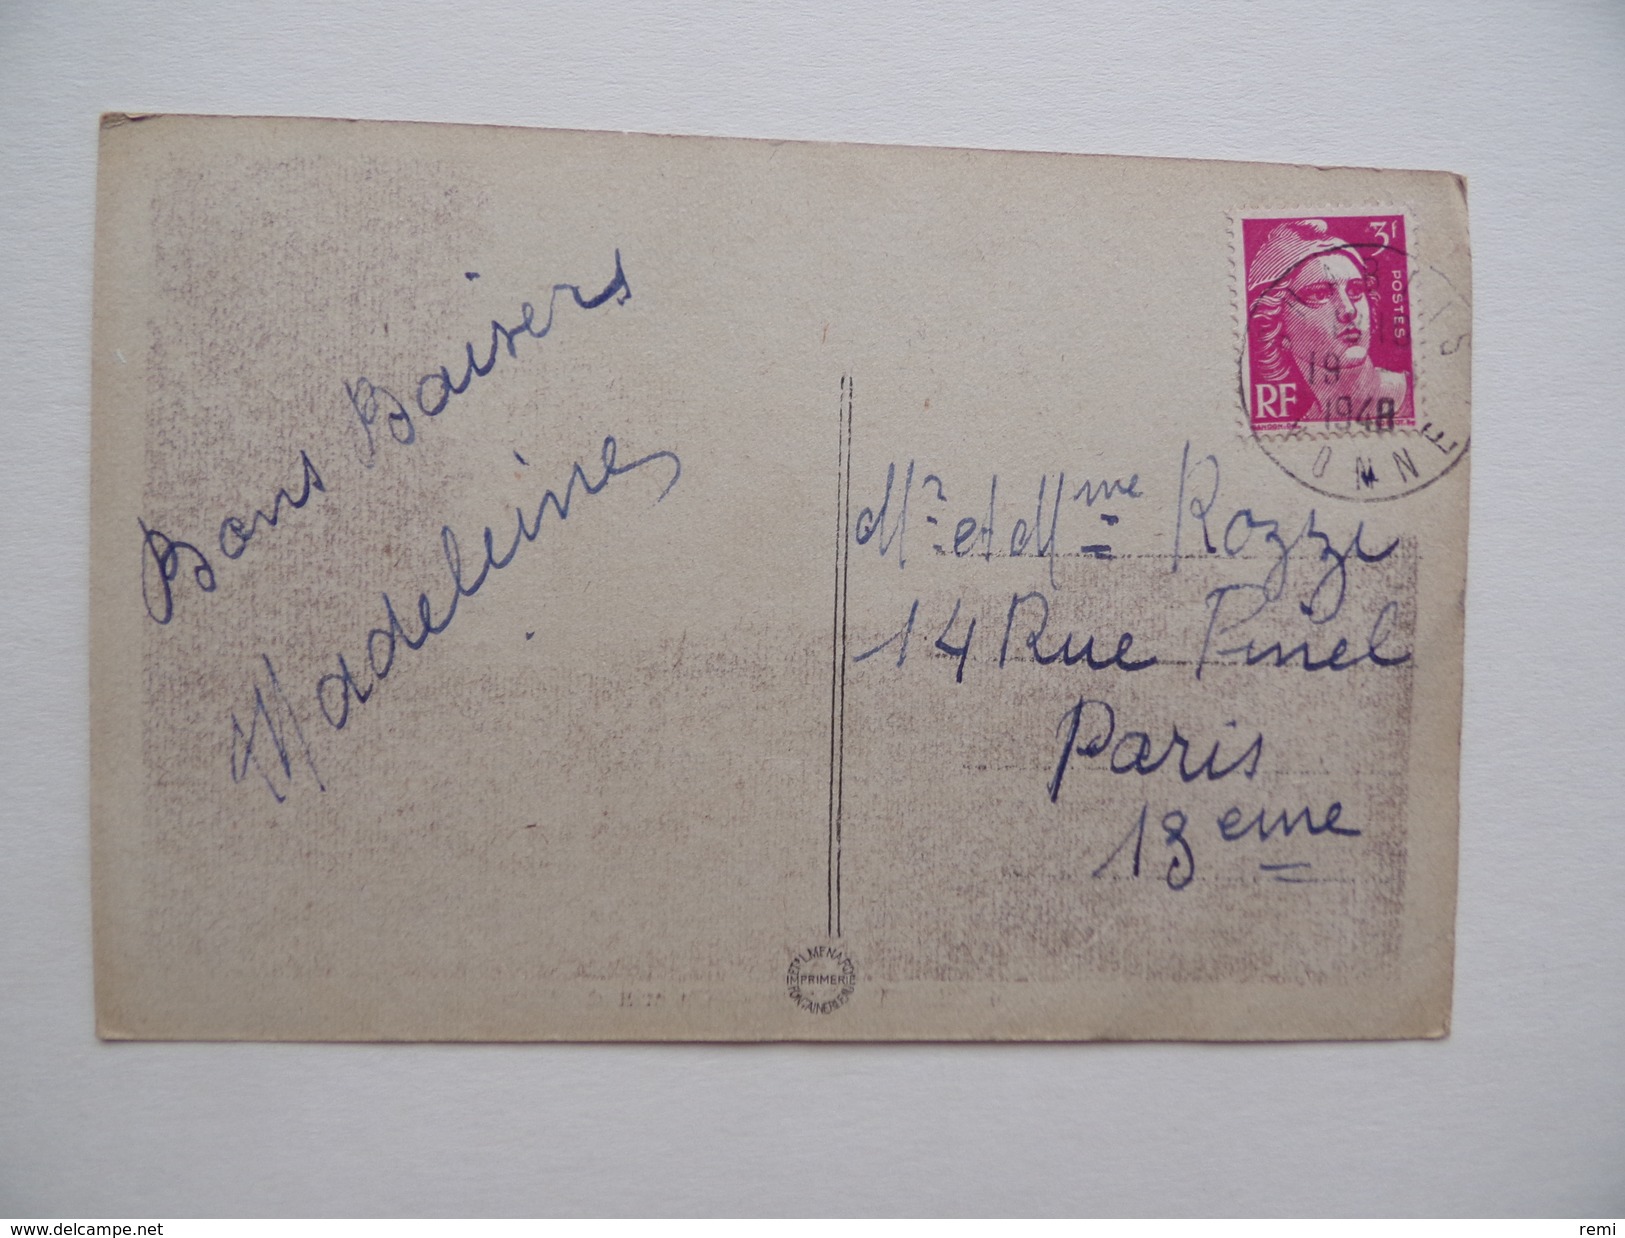 Bons Baisers
Madeleine
3f
POSTES
RF
19
1948
YONNE
Mr et Mme Rozzi
14 Rue Pinel
Paris
13eme
PRIMER
www.delcampe.net
remi